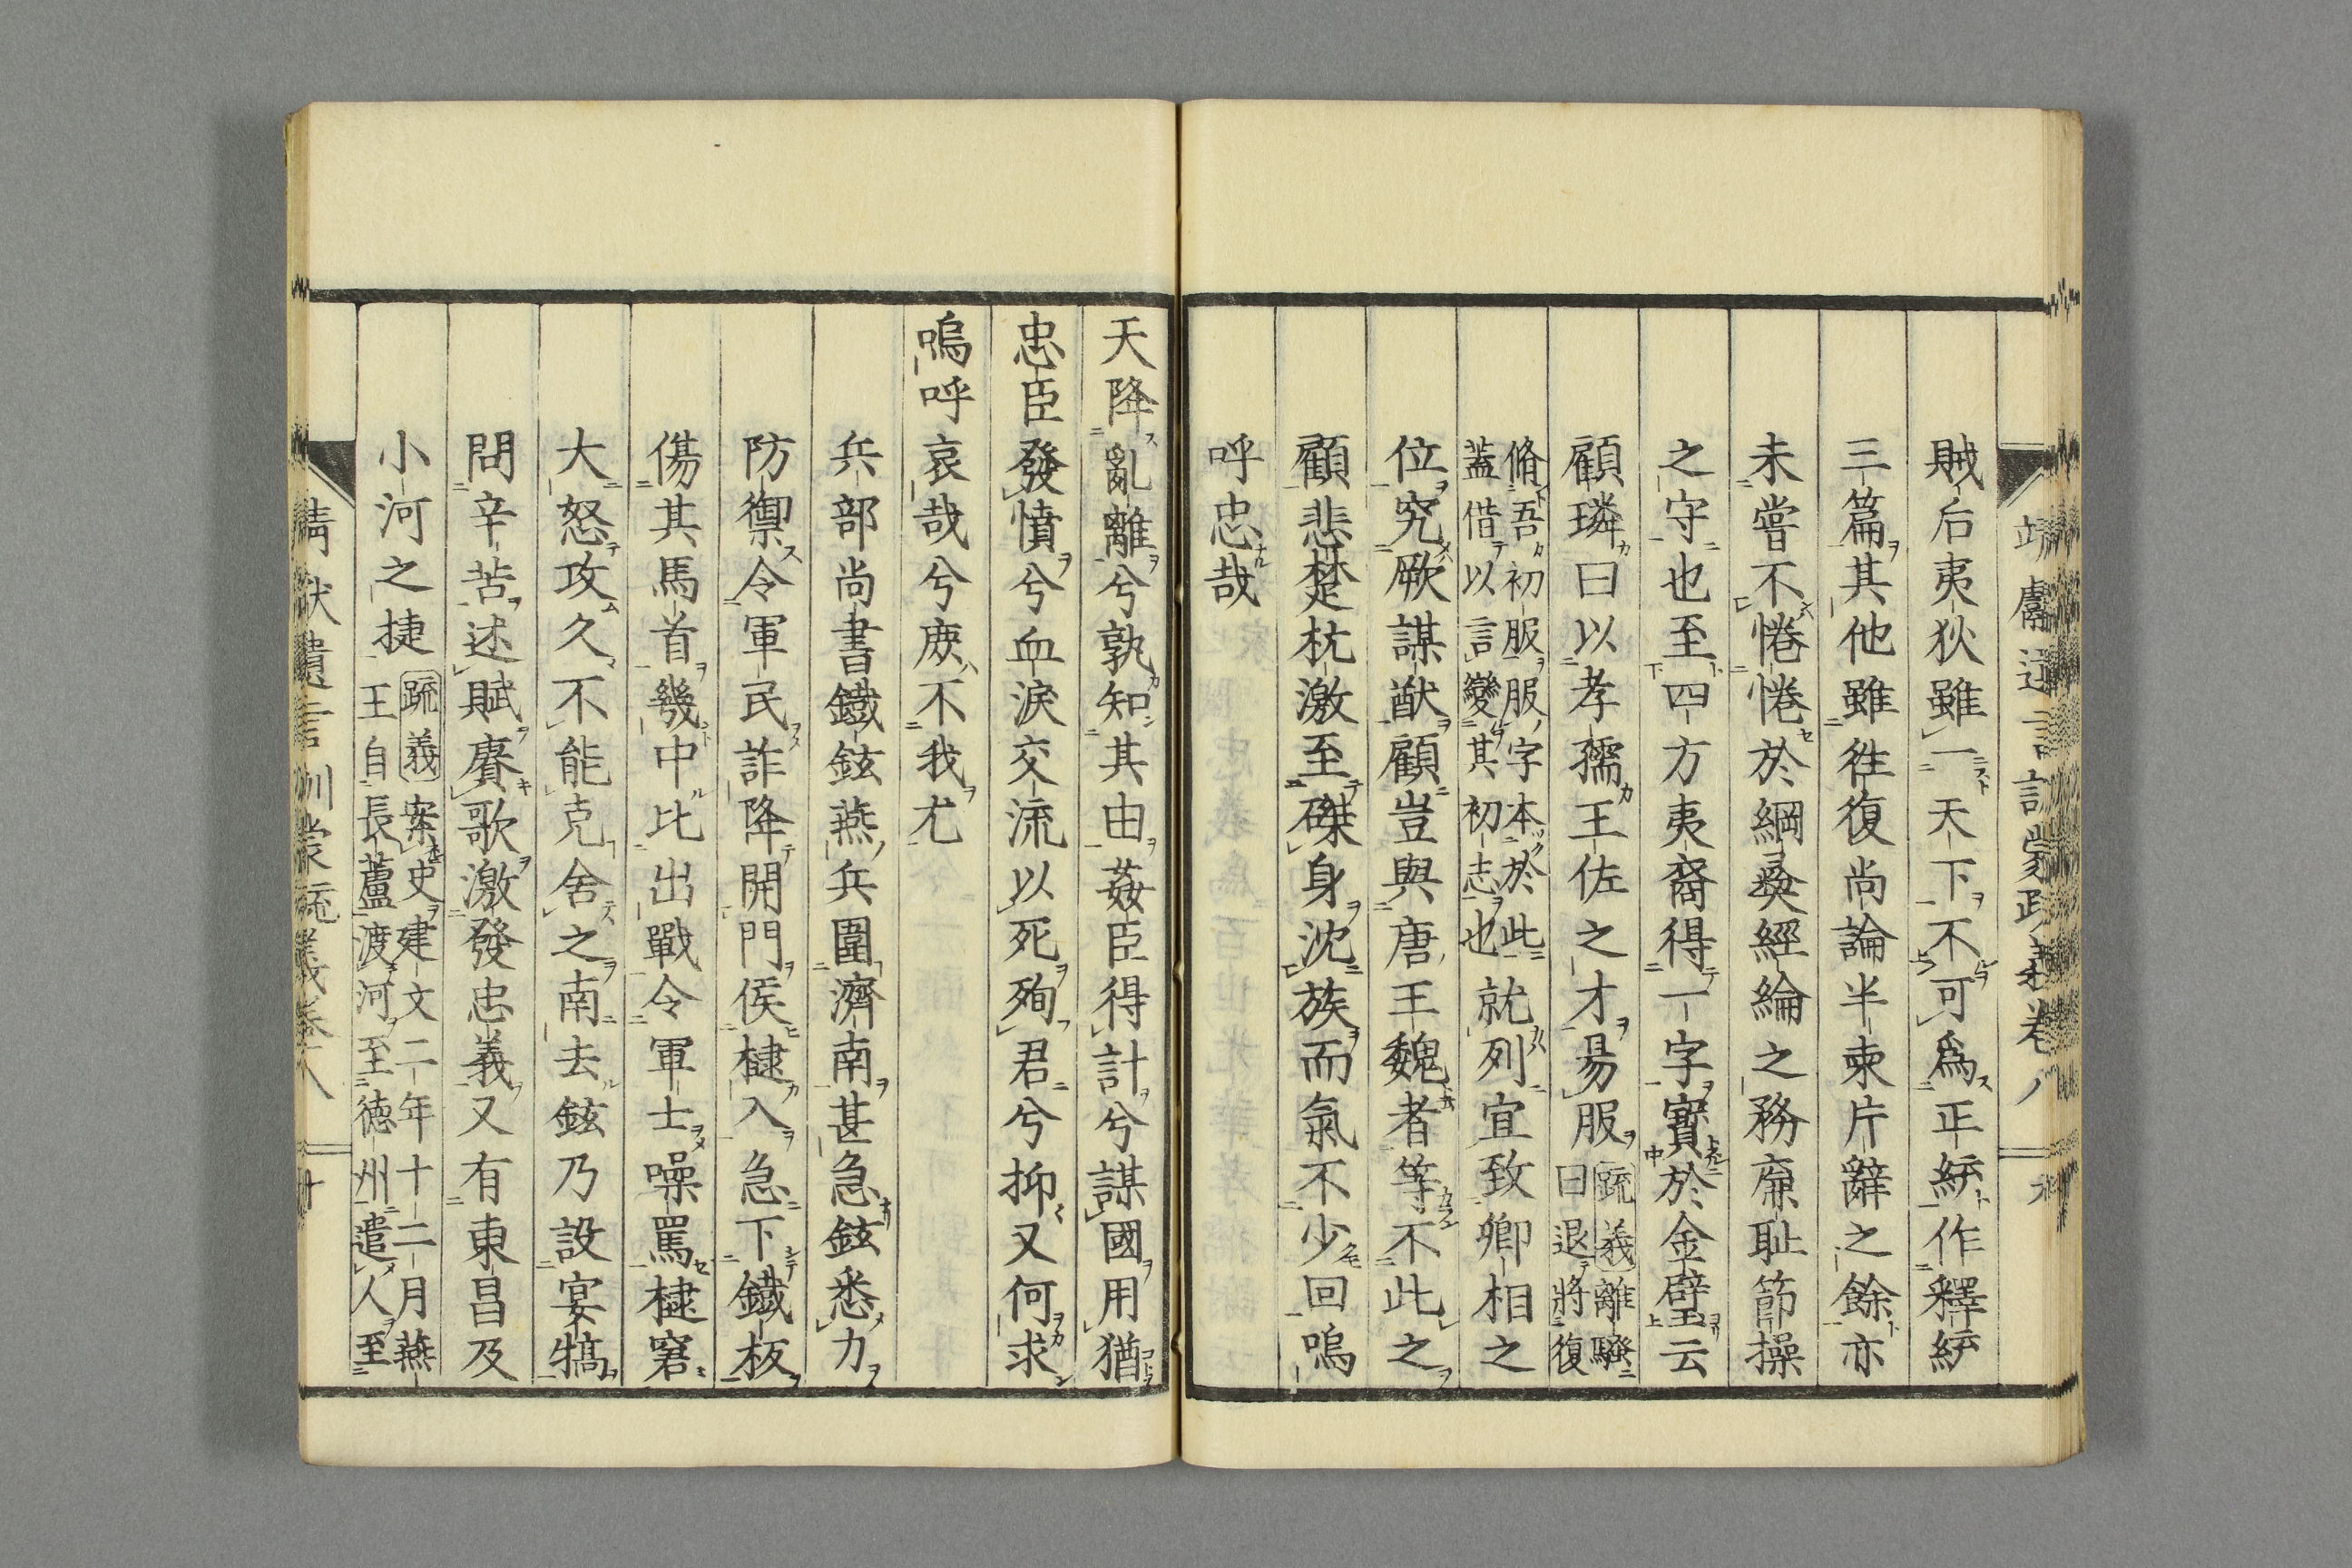 賊后夷狄雖一天下不可爲正統作釋統
三篇其他雖往復尚論半柬片辭之餘亦
未嘗不惓惓於綱彜經綸之務廉恥節操
之守也至四方夷裔得一字寳於金璧云
顧璘曰以孝孺王佐之才昜服疏義離騷
曰退將復
脩吾初服服字本於此
蓋借以言變其初志也就列宜致卿相之
位究厥謀猷顧豈與唐王魏者等不此之
顧悲楚杭激至磔身沈族而氣不少回嗚
呼忠哉
天降亂離兮孰知其由姦臣得計兮謀國用猶
忠臣發憤兮血淚交流以死殉君兮抑又何求
嗚呼哀哉兮庻不我尤
兵部尚書鐵鉉燕兵圍濟南甚急鉉悉力
防禦令軍民詐降開門俟棣入急下鐵板
傷其馬首幾中比出戰令軍士噪罵棣窘
大怒攻久不能克舍之南去鉉乃設宴犒
問辛苦述賦賡歌激發忠義又有東昌及
小河之捷疏義案史建文二年十二月燕
王自長蘆渡河至德州遣人至
靖獻遺言訓蒙疏義卷八